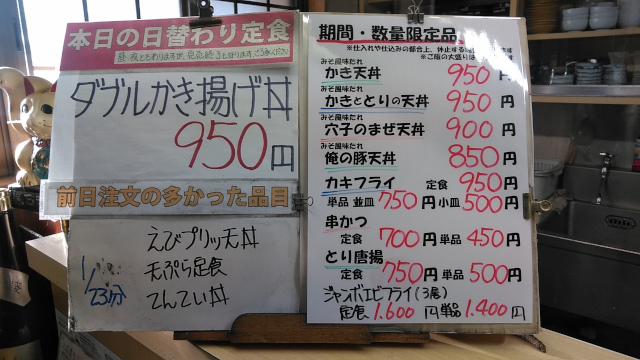 本日の日替わり定食
ダブルかき揚げ丼
950円
前日注文の多かった品目
1/23分
えびプリッ天丼
天ぷら定食
てんてい丼
期間・数量限定品
※仕入れや仕込みの都合上、休止する
※ご飯の大盛りは
みそ風味たれ
かき天丼 950円
みそ風味たれ
かきととりの天丼 950円
みそ風味たれ
穴子のまぜ天丼 900円
みそ風味たれ
俺の豚天丼 850円
カキフライ 定食 950円
単品 並皿 750円 小皿 500円
串かつ
定食 700円 単品 450円
とり唐揚
定食 750円 単品 500円
ジャンボエビフライ(3尾)
定食 1.600円 単品 1.400円